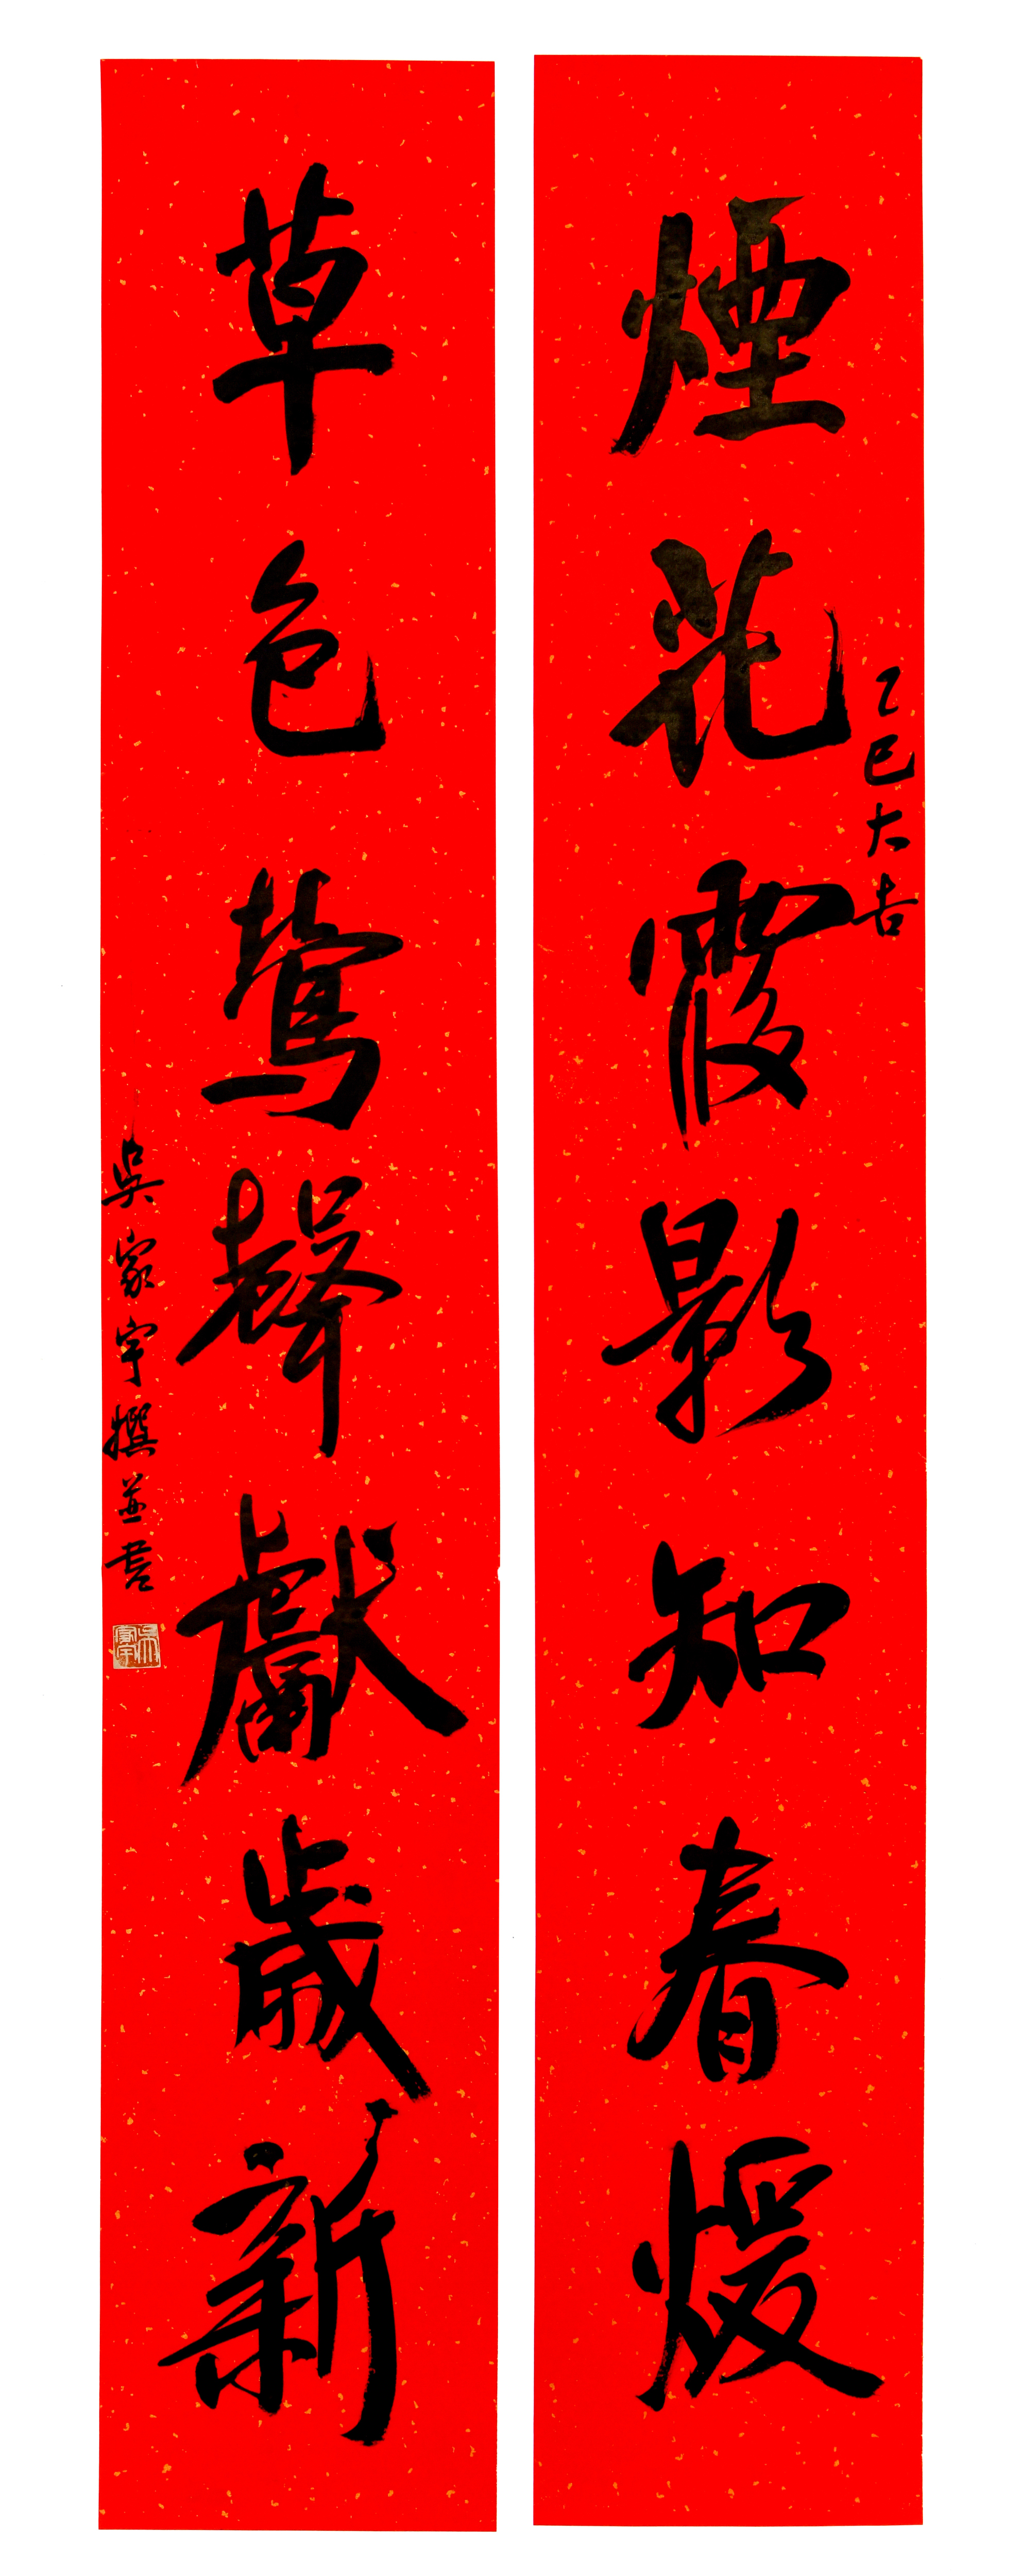 乙巳大吉
煙花霞影知春煖
草色鶯聲獻歲新
吳家宇撰並書